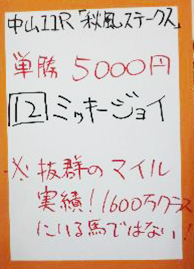 中山11R「秋風ステークス」
単勝 5000円
12 ミッキージョイ
※抜群のマイル
実績!1600万クラス
にいる馬ではない!